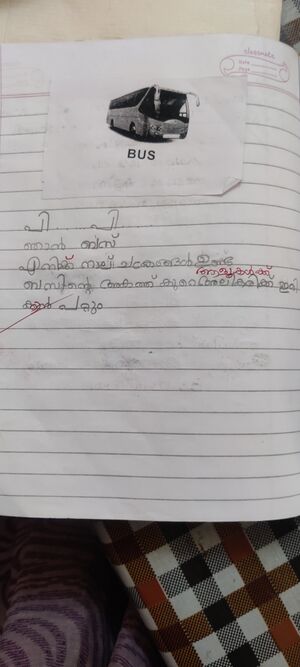 classmate
Date
Page
BUS
പി ........ പി
ഞാൻ ബസ്
എനിക്ക് നാല് ചക്രങ്ങൾ ഉണ്ട്
ആളുകൾക്ക്
ബസിന്റെ അകത്ത് കുറെ അലികൾക്ക് ഇരി
ക്കൻ പറ്റും